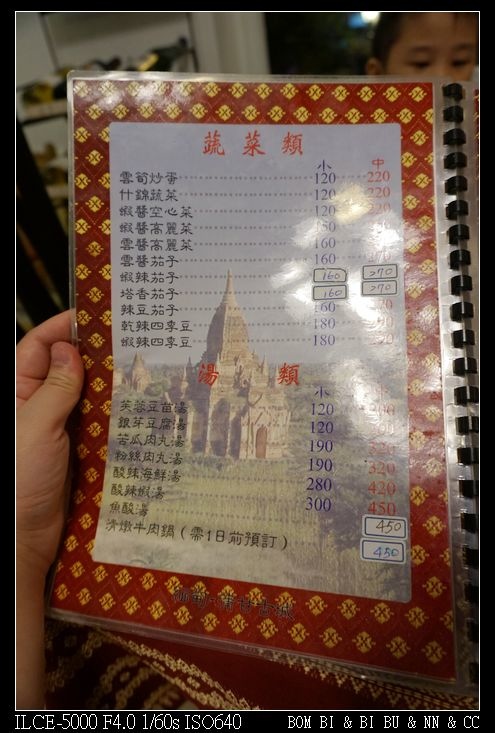 蔬菜類
小 中
雲筍炒蛋 120 220
什錦蔬菜 120 220
蝦醬空心菜 120
蝦醬高麗菜
雲醬高麗菜 160
雲醬茄子 160 270
蝦辣茄子 160 270
塔香茄子 160 270
辣豆茄子 160
乾辣四季豆 180
蝦辣四季豆 180
湯類
小
芙蓉豆苗湯 120 200
銀芽豆腐湯 120
苦瓜肉丸湯 190 320
粉絲肉丸湯 190 320
酸辣海鮮湯 280 420
酸辣蝦湯 300 450
魚酸湯 450
清燉牛肉鍋(需1日前預訂) 450
緬甸-蒲甘古城
ILCE-5000 F4.0 1/60s ISO640
BOM BI & BI BU & NN & CC